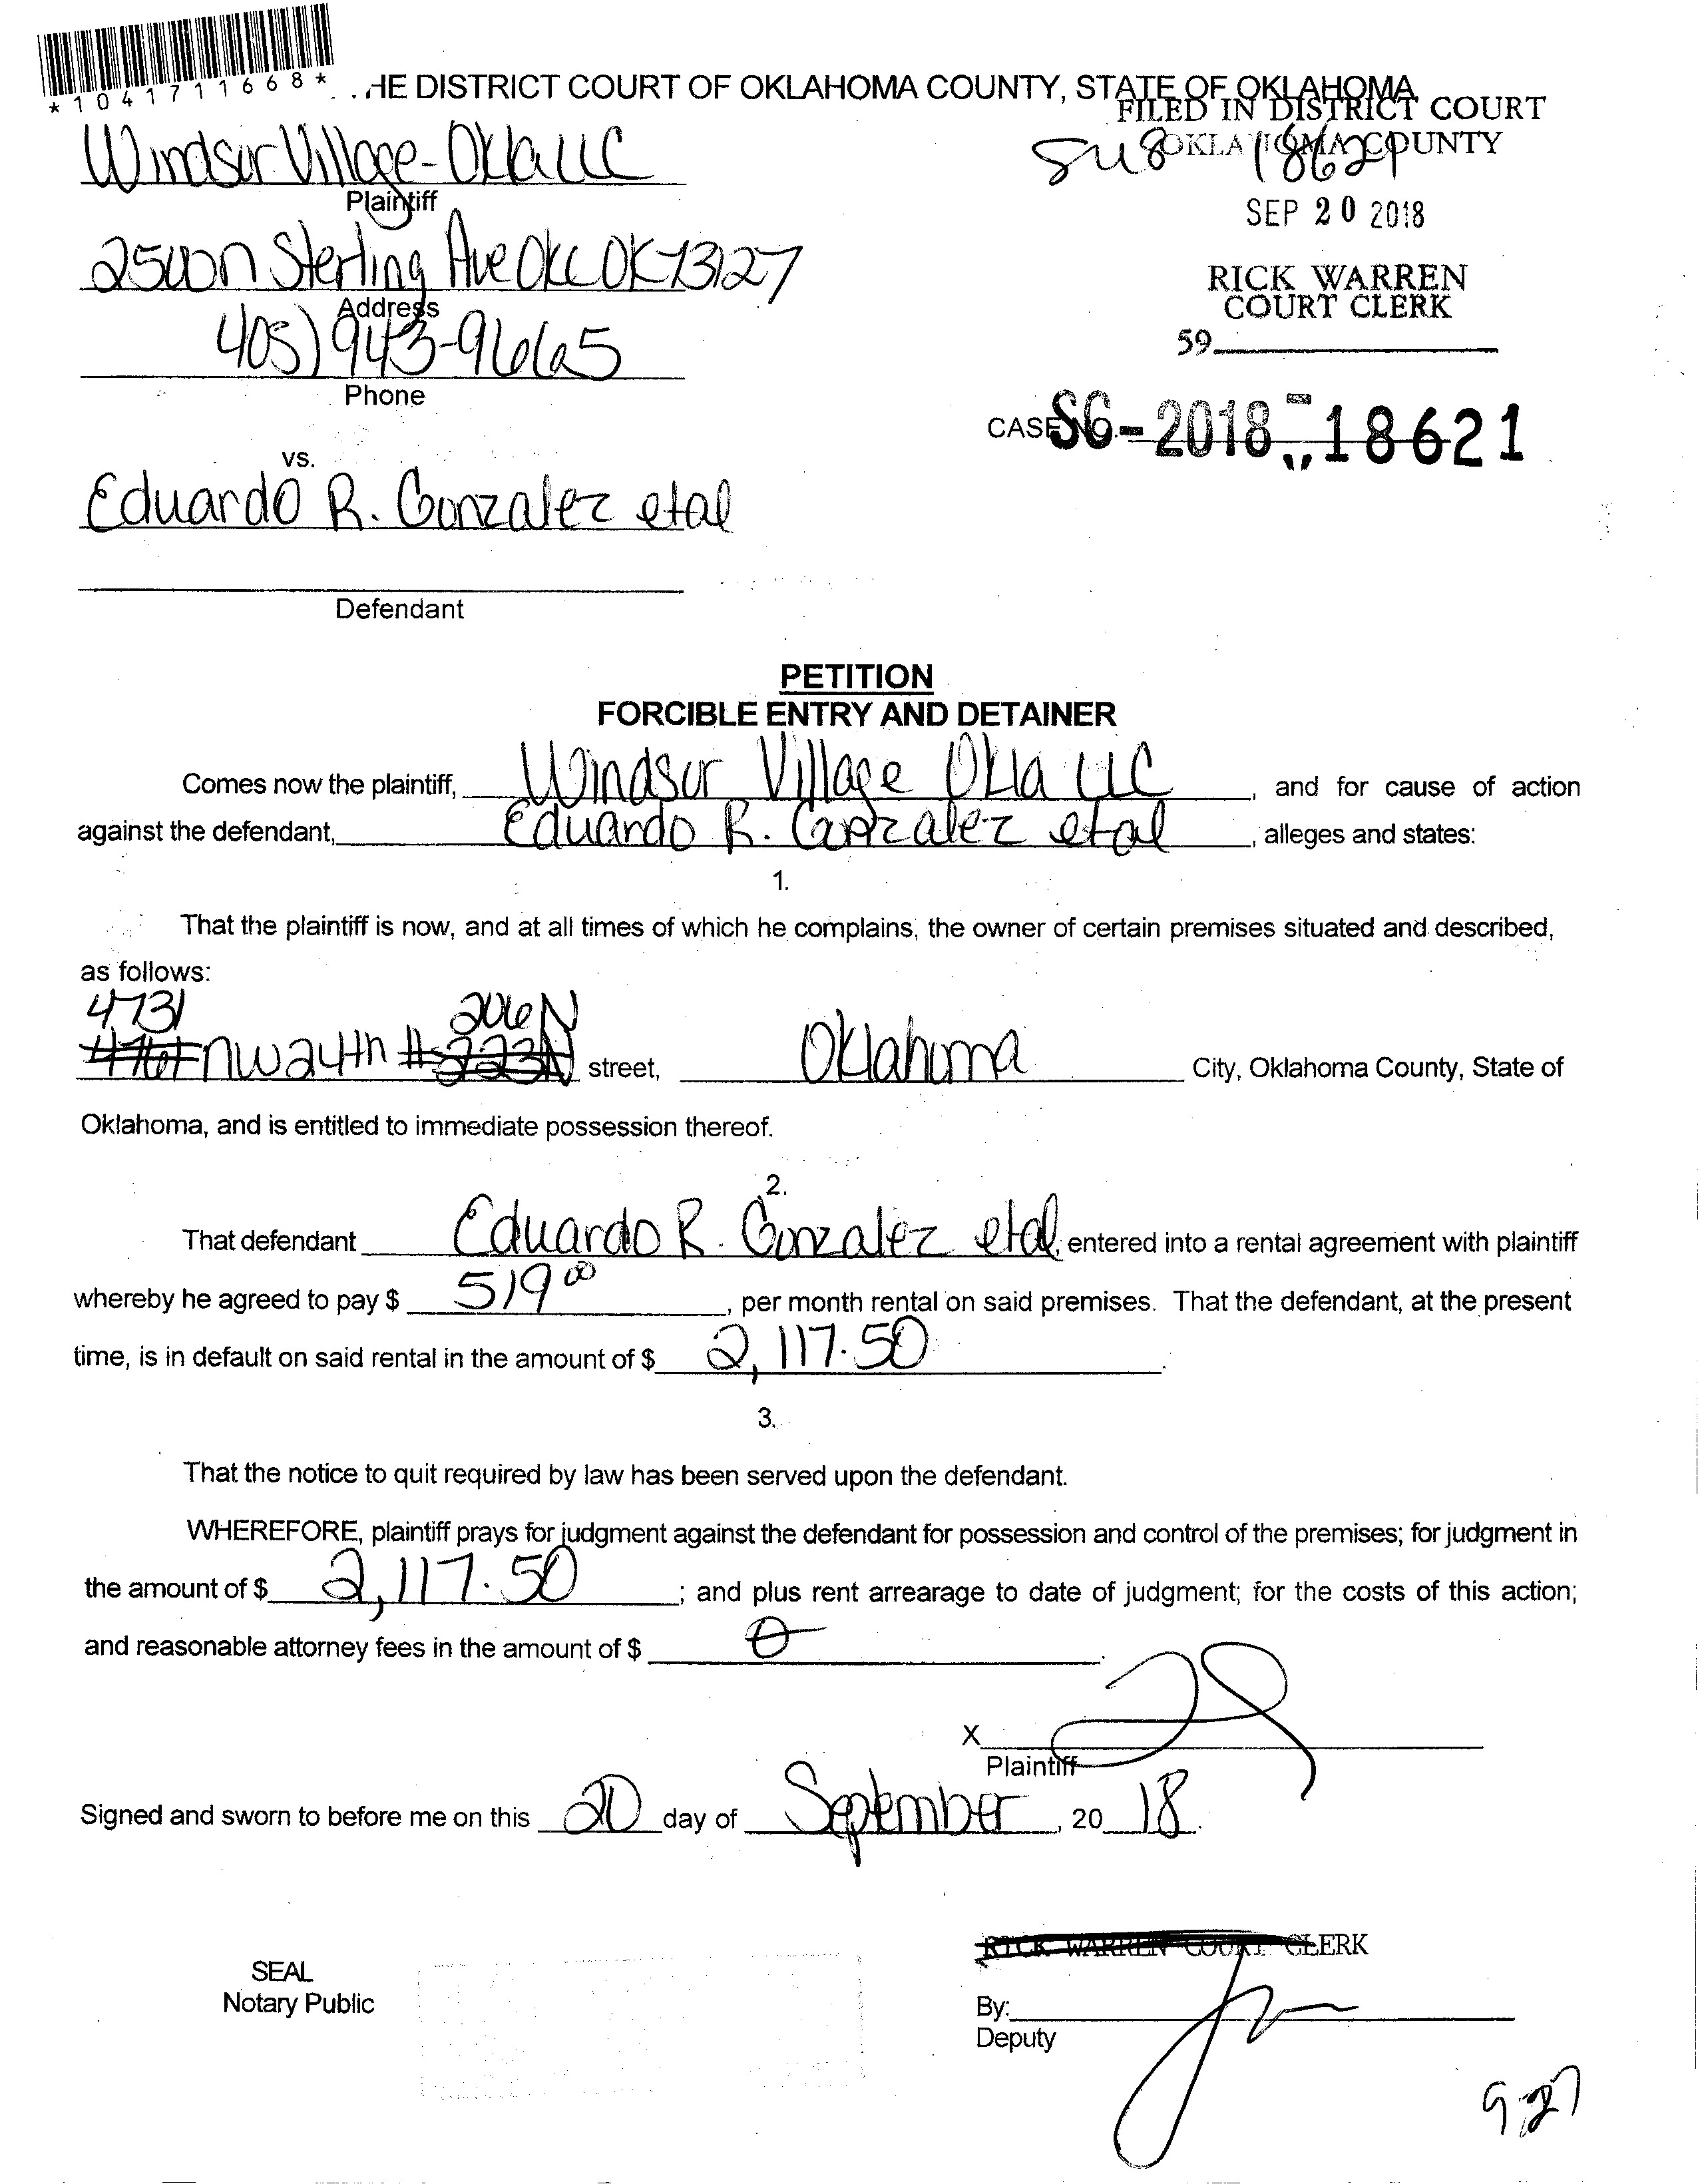 *1041711668*
HE DISTRICT COURT OF OKLAHOMA COUNTY, STATE OF OKLAHOMA
FILED IN DISTRICT COURT
OKLAHOMA COUNTY
18621
SEP 20 2018
RICK WARREN
COURT CLERK
59
Windsor Village-Okla LLC
Plaintiff
2500 N Sterling Ave OKC OK 73127
Address
405) 943-9665
Phone
CASE NO. SC-2018-18621
vs.
Eduardo R. Gonzalez etal
Defendant
PETITION
FORCIBLE ENTRY AND DETAINER
Comes now the plaintiff, Windsor Village Okla LLC, and for cause of action
against the defendant, Eduardo R. Gonzalez etal, alleges and states:
1.
That the plaintiff is now, and at all times of which he complains, the owner of certain premises situated and described,
as follows:
4731 206N
NW 24th # 223N street, Oklahoma City, Oklahoma County, State of
Oklahoma, and is entitled to immediate possession thereof.
2.
That defendant Eduardo R. Gonzalez etal, entered into a rental agreement with plaintiff
whereby he agreed to pay $ 519.00, per month rental on said premises. That the defendant, at the present
time, is in default on said rental in the amount of $ 2,117.50.
3.
That the notice to quit required by law has been served upon the defendant.
WHEREFORE, plaintiff prays for judgment against the defendant for possession and control of the premises; for judgment in
the amount of $ 2,117.50; and plus rent arrearage to date of judgment; for the costs of this action;
and reasonable attorney fees in the amount of $ 0.
X
Plaintiff
Signed and sworn to before me on this 20 day of September, 20 18.
RICK WARREN COURT CLERK
SEAL
Notary Public
By:
Deputy
9-27